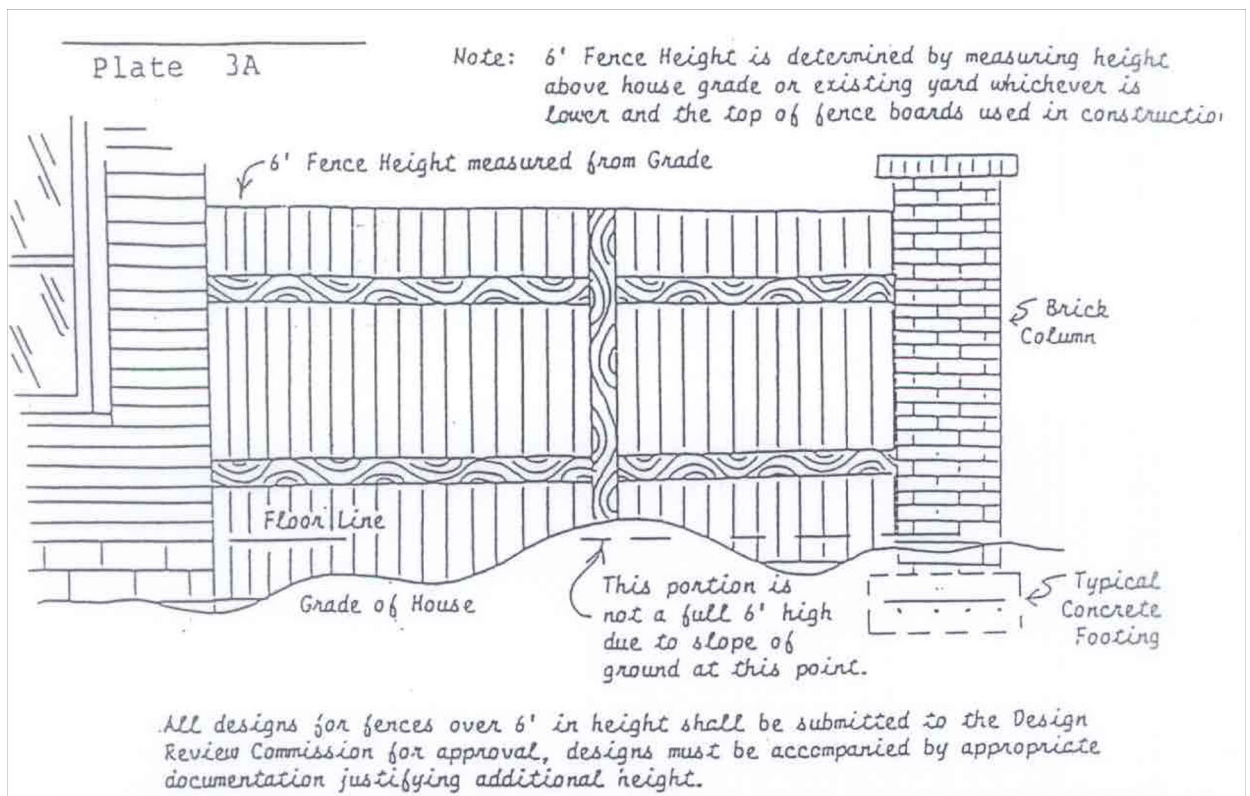 Plate 3A
Note: 6' Fence Height is determined by measuring height
above house grade or existing yard whichever is
lower and the top of fence boards used in constructio
6' Fence Height measured from Grade
Brick
Column
Floor Line
Grade of House
This portion is
not a full 6' high
due to slope of
ground at this point.
Typical
Concrete
Footing
All designs for fences over 6' in height shall be submitted to the Design
Review Commission for approval, designs must be accompanied by appropriate
documentation justifying additional height.